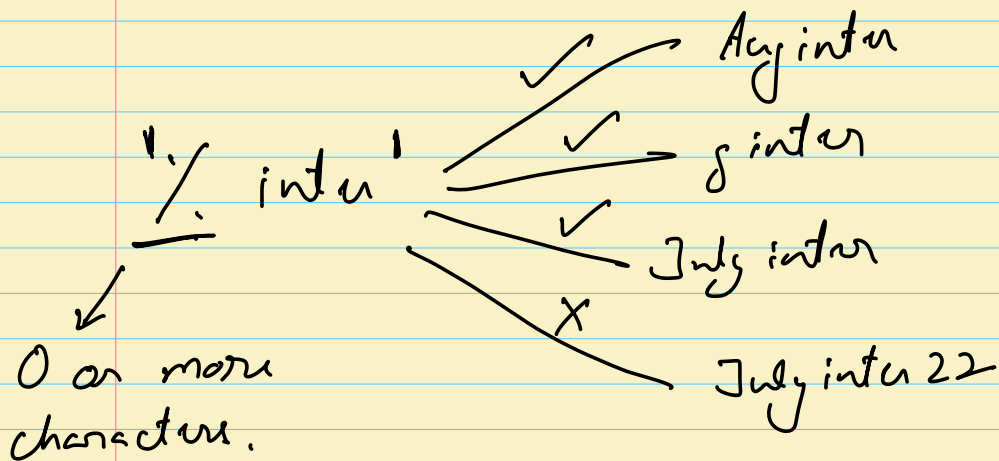 '% inter'
Aug inter
g inter
July inter
July inter 22
0 or more
characters.